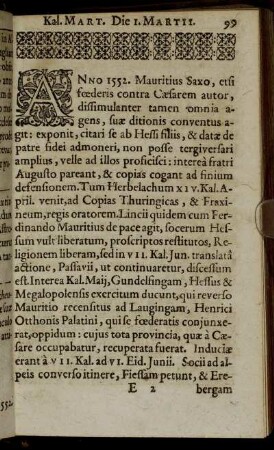 Kal. MART. Die 1. MARTII. 99
ANNO 1552. Mauritius Saxo, etsi
fœderis contra Cæsarem autor,
dissimulanter tamen omnia a-
gens, suæ ditionis conventus a-
git: exponit, citari se ab Hessi filiis, & datæ de
patre fidei admoneri, non posse tergiversari
amplius, velle ad illos proficisci: interea fratri
Augusto pareant, & copias cogant ad finium
defensionem. Tum Herbelachum XIV. Kal. A-
pril. venit, ad Copias Thuringicas, & Fraxi-
neum, regis oratorem. Lincii quidem cum Fer-
dinando Mauritius de pace agit, socerum Hes-
sum vult liberatum, proscriptos restitutos, Re-
ligionem liberam, sed in VII. Kal. Jun. translatâ
actione, Passavii, ut continuaretur, discessum
est. Interea Kal. Maij, Gundelfingam, Hessus &
Megalopolensis exercitum ducunt, qui reverso
Mauritio recensitus ad Laugingam, Henrici
Otthonis Palatini, qui se fœderatis conjunxe-
rat, oppidum: cujus tota provincia, quæ à Cæ-
sare occupabatur, recuperata fuerat. Induciæ
erant à VII. Kal. ad VI. Eid. Junii. Socii ad al-
peis converso itinere, Fiessam petunt, & Ere-
E 2 bergam